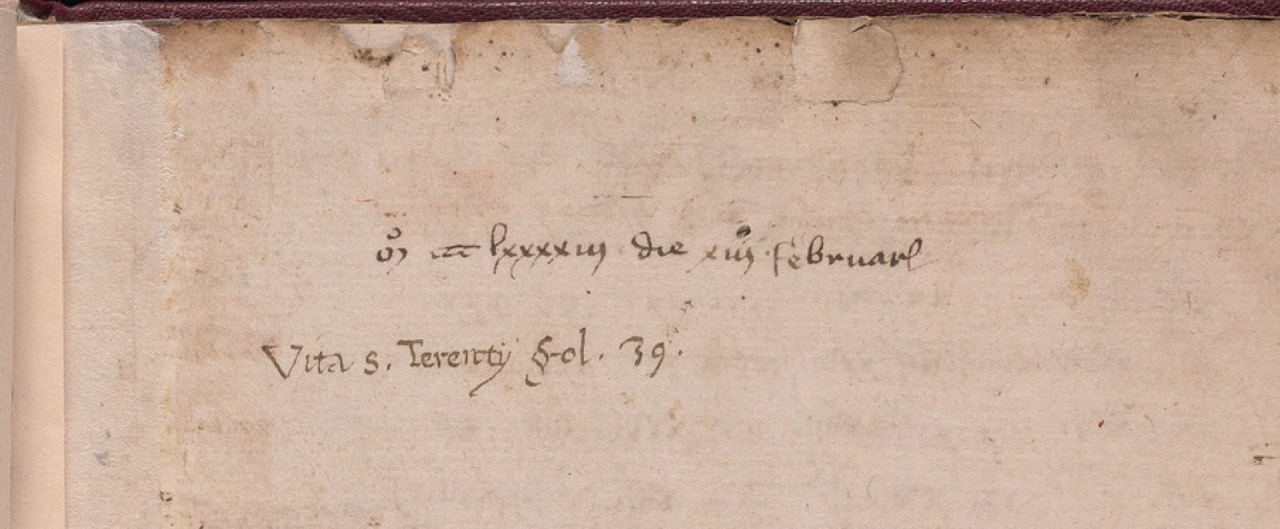 lxxxxiij die xiiij februar
Vita s. Terentij Fol. 39.